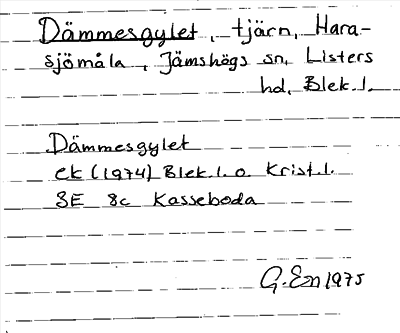 Dämmesgylet, tjärn, Hara-
sjömåla, Jämshögs sn, Listers
hd, Blek.l.
Dämmesgylet
ek (1974) Blek.l. o. Krist.l.
3E 8c Kasseboda
G. En 1975